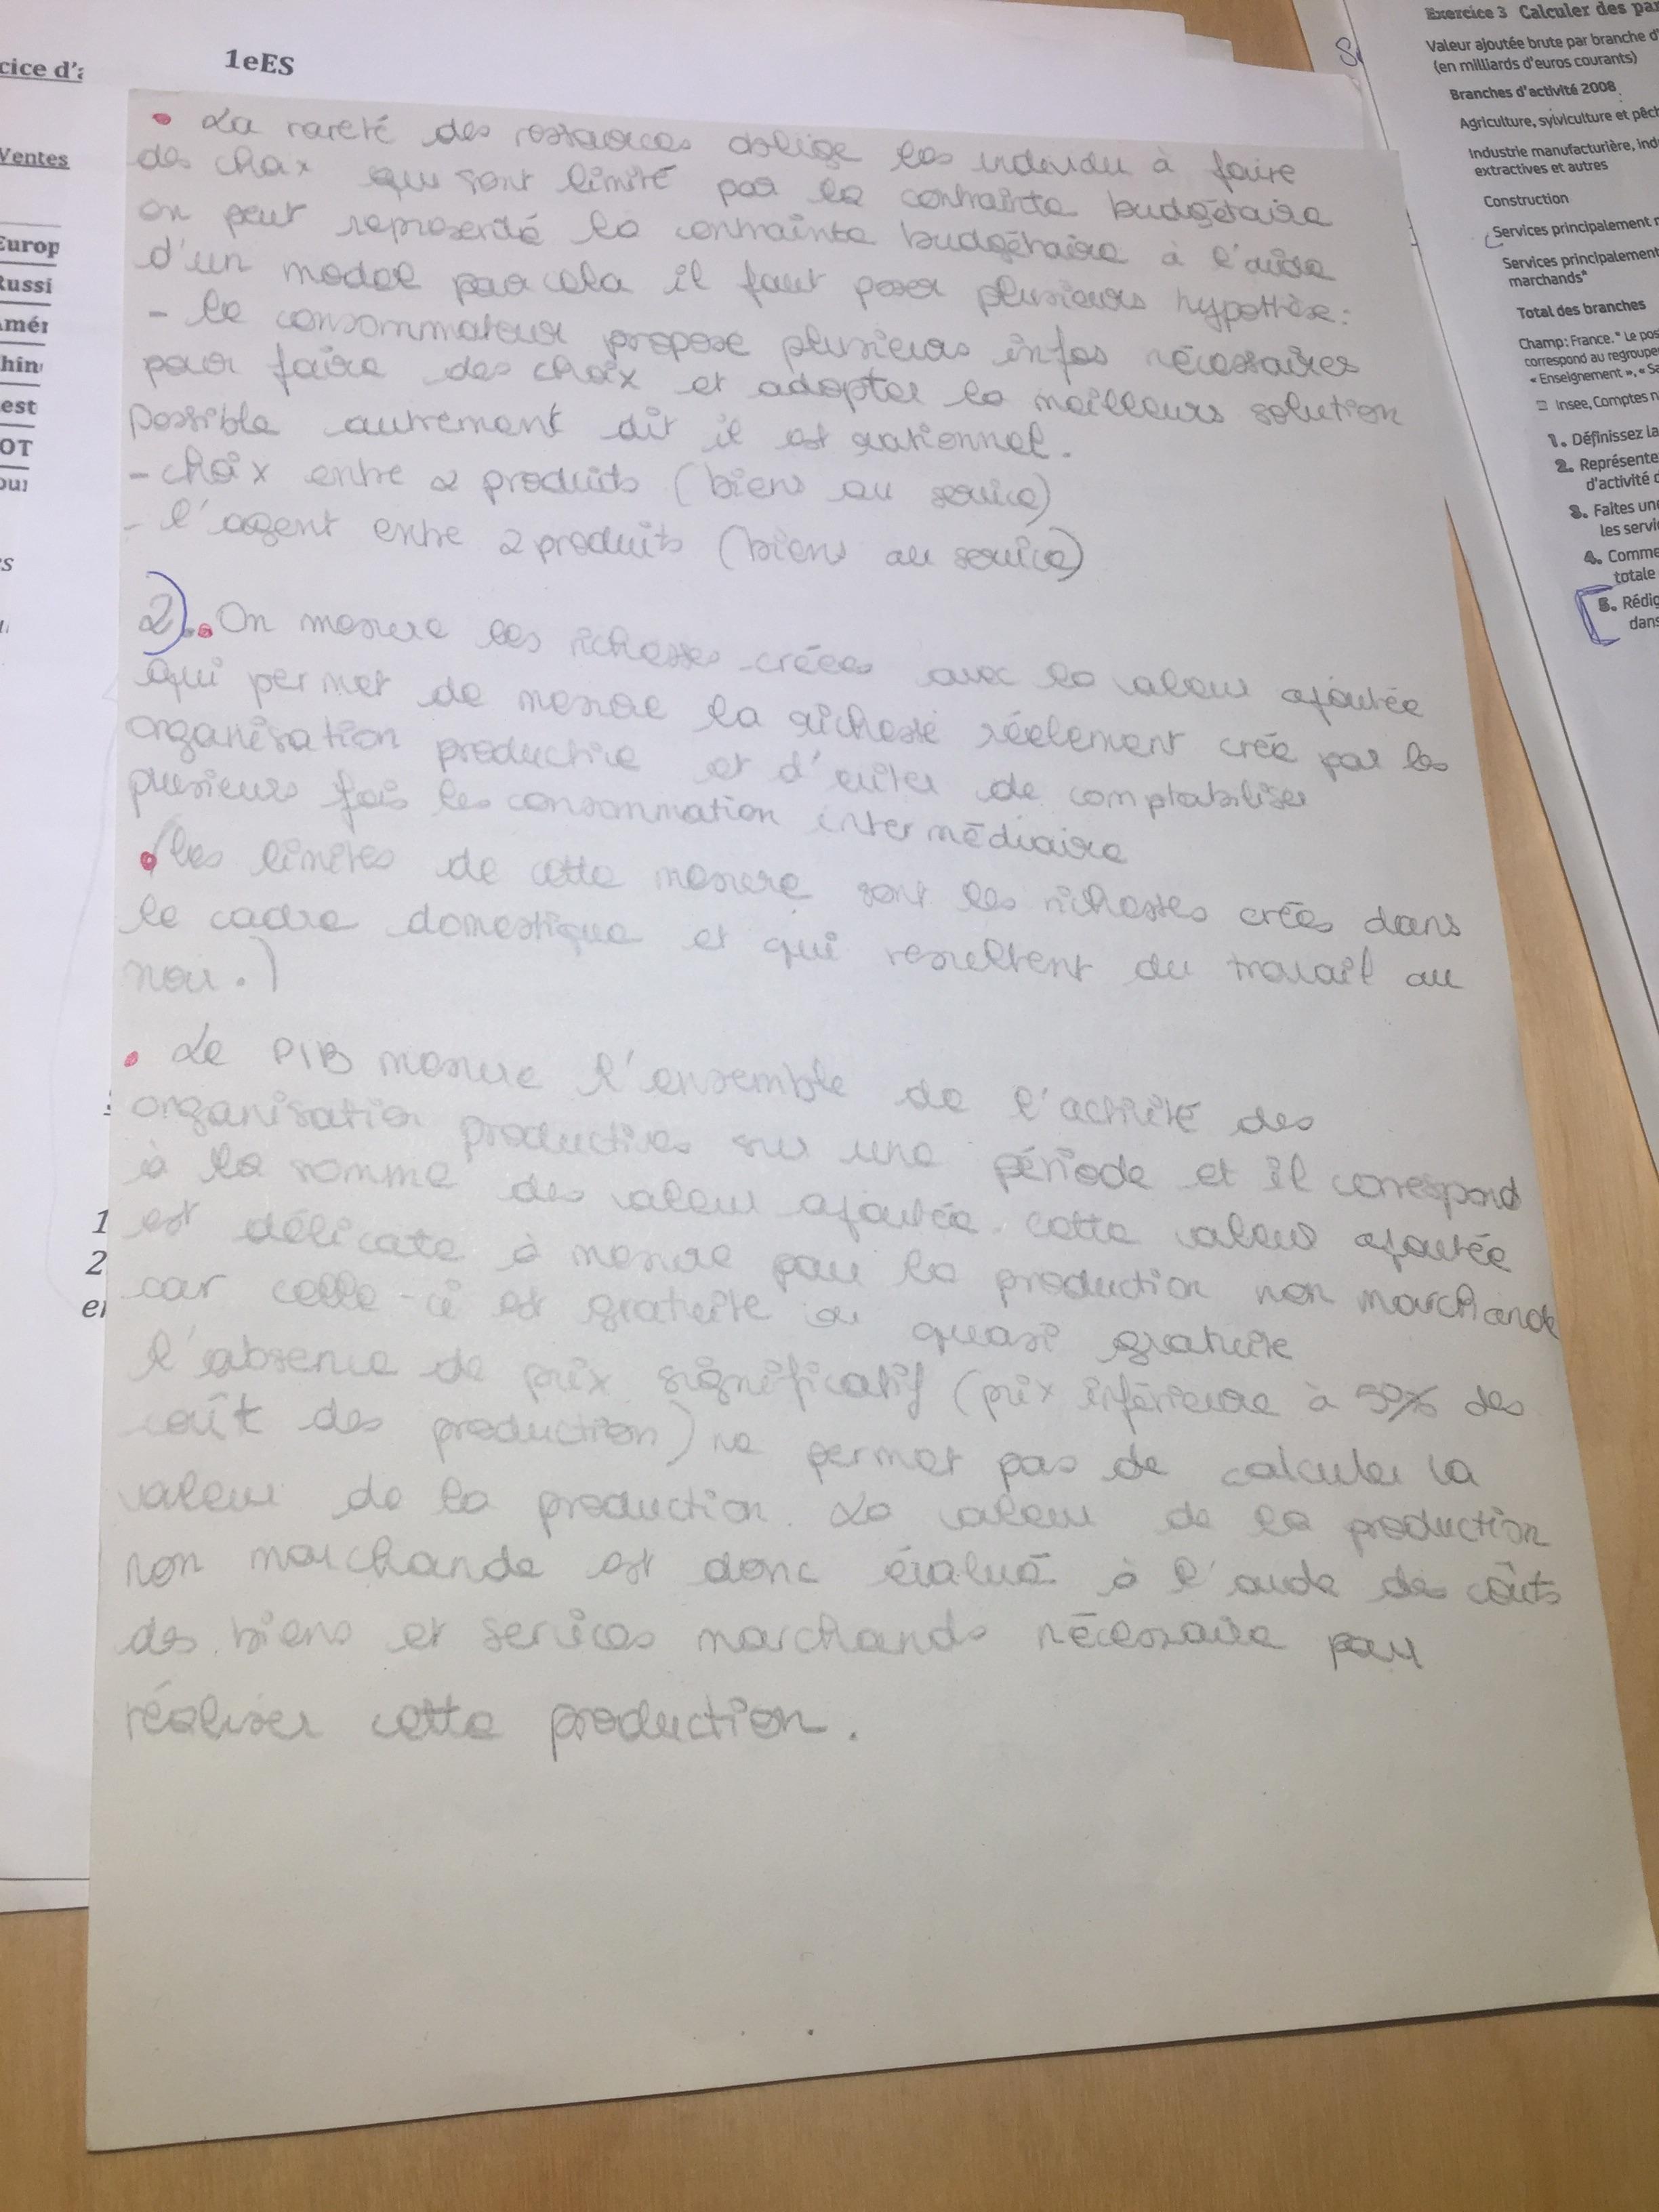 1eES
cice d'a
Ventes
Europ
Russi
Amér
hin
est
OT
• La rareté des ressources oblige les individu à faire
des choix qui sont limité par la contrainte budgétaire
on peut représenté la contrainte budgétaire à l'aide
d'un model pour cela il faut poser plusieurs hypothèse:
- le consommateur propose plusieurs infos nécessaires
pour faire des choix et adopter la meilleurs solution
possible autrement dit il est rationnel.
- choix entre 2 produits (biens ou service)
- l'agent entre 2 produits (biens ou service)
2). • On mesure les richesses créées avec la valeur ajoutée
qui permet de mesure la richesse réelement crée par les
organisation productive et d'eviter de comptabiliser
plusieurs fois les consommation intermédiaire
• (les limites de cette mesure sont les richesses créés dans
le cadre domestique et qui resultent du travail au
noir.)
• Le PIB mesure l'ensemble de l'activité des
organisation productives sur une période et il correspond
à la somme des valeur ajoutée. cette valeur ajoutée
est délicate à mesure pour la production non marchande
car celle-ci est gratuite ou quasi gratuite
l'absence de prix significatif (prix inférieure à 50% des
coût des production) ne permet pas de calculer la
valeur de la production. La valeur de la production
non marchande est donc évalué à l'aide des coûts
des biens et services marchands nécessaire pour
réaliser cette production.
1
2
Exercice 3 Calculer des par
Valeur ajoutée brute par branche d'
(en milliards d'euros courants)
Branches d'activité 2008
Agriculture, sylviculture et pêch
Industrie manufacturière, ind
extractives et autres
Construction
Services principalement m
Services principalement
marchands*
Total des branches
Champ: France. * Le pos
correspond au regroupe
« Enseignement », « Sa
Insee, Comptes n
1. Définissez la
2. Représente
d'activité d
3. Faites une
les servi
4. Comme
totale
5. Rédig
dans